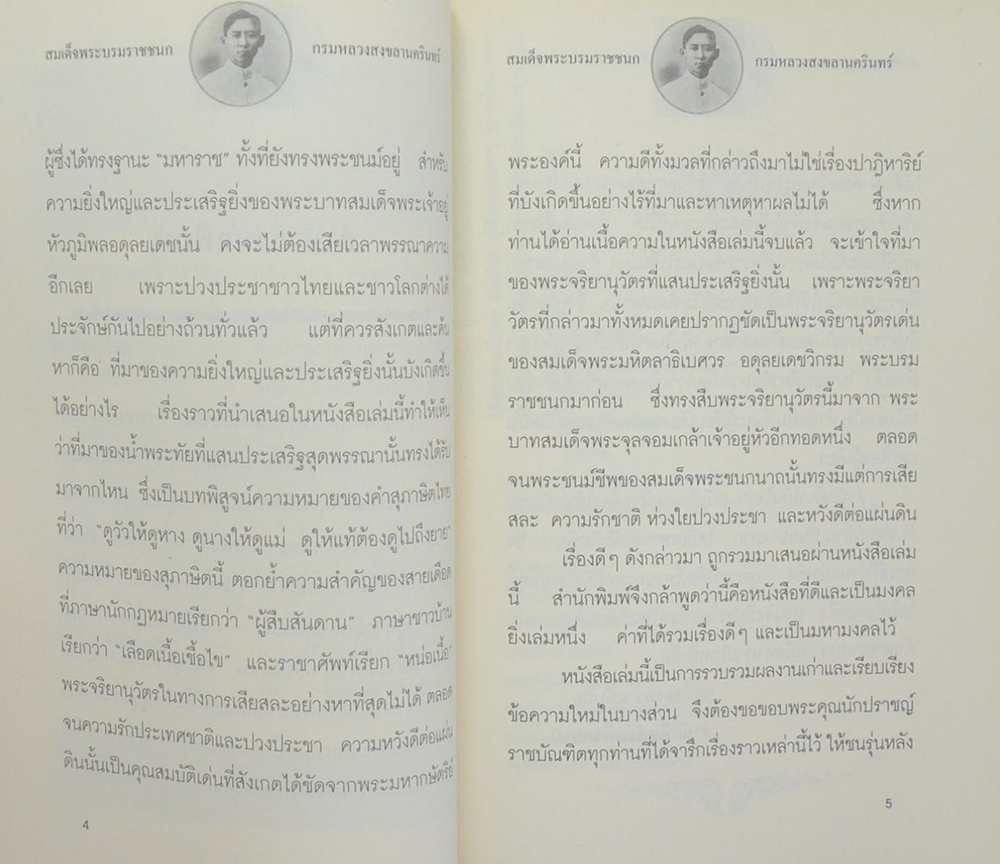 สมเด็จพระบรมราชชนก กรมหลวงสงขลานครินทร์
ผู้ซึ่งได้ทรงฐานะ "มหาราช" ทั้งที่ยังทรงพระชนม์อยู่ สำหรับ
ความยิ่งใหญ่และประเสริฐยิ่งของพระบาทสมเด็จพระเจ้าอยู่
หัวภูมิพลอดุลยเดชนั้น คงจะไม่ต้องเสียเวลาพรรณาความ
อีกเลย เพราะปวงประชาชาวไทยและชาวโลกต่างได้
ประจักษ์กันไปอย่างถ้วนทั่วแล้ว แต่ที่ควรสังเกตและค้น
หาก็คือ ที่มาของความยิ่งใหญ่และประเสริฐยิ่งนั้นบังเกิดขึ้น
ได้อย่างไร เรื่องราวที่นำเสนอในหนังสือเล่มนี้ทำให้เห็น
ว่าที่มาของน้ำพระทัยที่แสนประเสริฐสุดพรรณานั้นทรงได้รับ
มาจากไหน ซึ่งเป็นบทพิสูจน์ความหมายของคำสุภาษิตไทย
ที่ว่า "ดูวัวให้ดูหาง ดูนางให้ดูแม่ ดูให้แท้ต้องดูไปถึงยาย"
ความหมายของสุภาษิตนี้ ตอกย้ำความสำคัญของสายเดือด
ที่ภาษานักกฎหมายเรียกว่า "ผู้สืบสันดาน" ภาษาชาวบ้าน
เรียกว่า "เลือดเนื้อเชื้อไข" และราชาศัพท์เรียก "หน่อเนื้อ"
พระจริยานุวัตรในทางการเสียสละอย่างหาที่สุดไม่ได้ ตลอด
จนความรักประเทศชาติและปวงประชา ความหวังดีต่อแผ่น
ดินนั้นเป็นคุณสมบัติเด่นที่สังเกตได้ชัดจากพระมหากษัตริย์
4
สมเด็จพระบรมราชชนก กรมหลวงสงขลานครินทร์
พระองค์นี้ ความดีทั้งมวลที่กล่าวถึงมาไม่ใช่เรื่องปาฏิหาริย์
ที่บังเกิดขึ้นอย่างไร้ที่มาและหาเหตุหาผลไม่ได้ ซึ่งหาก
ท่านได้อ่านเนื้อความในหนังสือเล่มนี้จบแล้ว จะเข้าใจที่มา
ของพระจริยานุวัตรที่แสนประเสริฐยิ่งนั้น เพราะพระจริยา
วัตรที่กล่าวมาทั้งหมดเคยปรากฏชัดเป็นพระจริยานุวัตรเด่น
ของสมเด็จพระมหิตลาธิเบศวร อดุลยเดชวิกรม พระบรม
ราชชนกมาก่อน ซึ่งทรงสืบพระจริยานุวัตรนี้มาจาก พระ
บาทสมเด็จพระจุลจอมเกล้าเจ้าอยู่หัวอีกทอดหนึ่ง ตลอด
จนพระชนม์ชีพของสมเด็จพระชนกนาถนั้นทรงมีแต่การเสีย
สละ ความรักชาติ ห่วงใยปวงประชา และหวังดีต่อแผ่นดิน
เรื่องดีๆ ดังกล่าวมา ถูกรวมมาเสนอผ่านหนังสือเล่ม
นี้ สำนักพิมพ์จึงกล้าพูดว่านี้คือหนังสือที่ดีและเป็นมงคล
ยิ่งเล่มหนึ่ง ค่าที่ได้รวมเรื่องดีๆ และเป็นมหามงคลไว้
หนังสือเล่มนี้เป็นการรวบรวมผลงานเก่าและเรียบเรียง
ข้อความใหม่ในบางส่วน จึงต้องขอขอบพระคุณนักปราชญ์
ราชบัณฑิตทุกท่านที่ได้จารึกเรื่องราวเหล่านี้ไว้ ให้ชนรุ่นหลัง
5